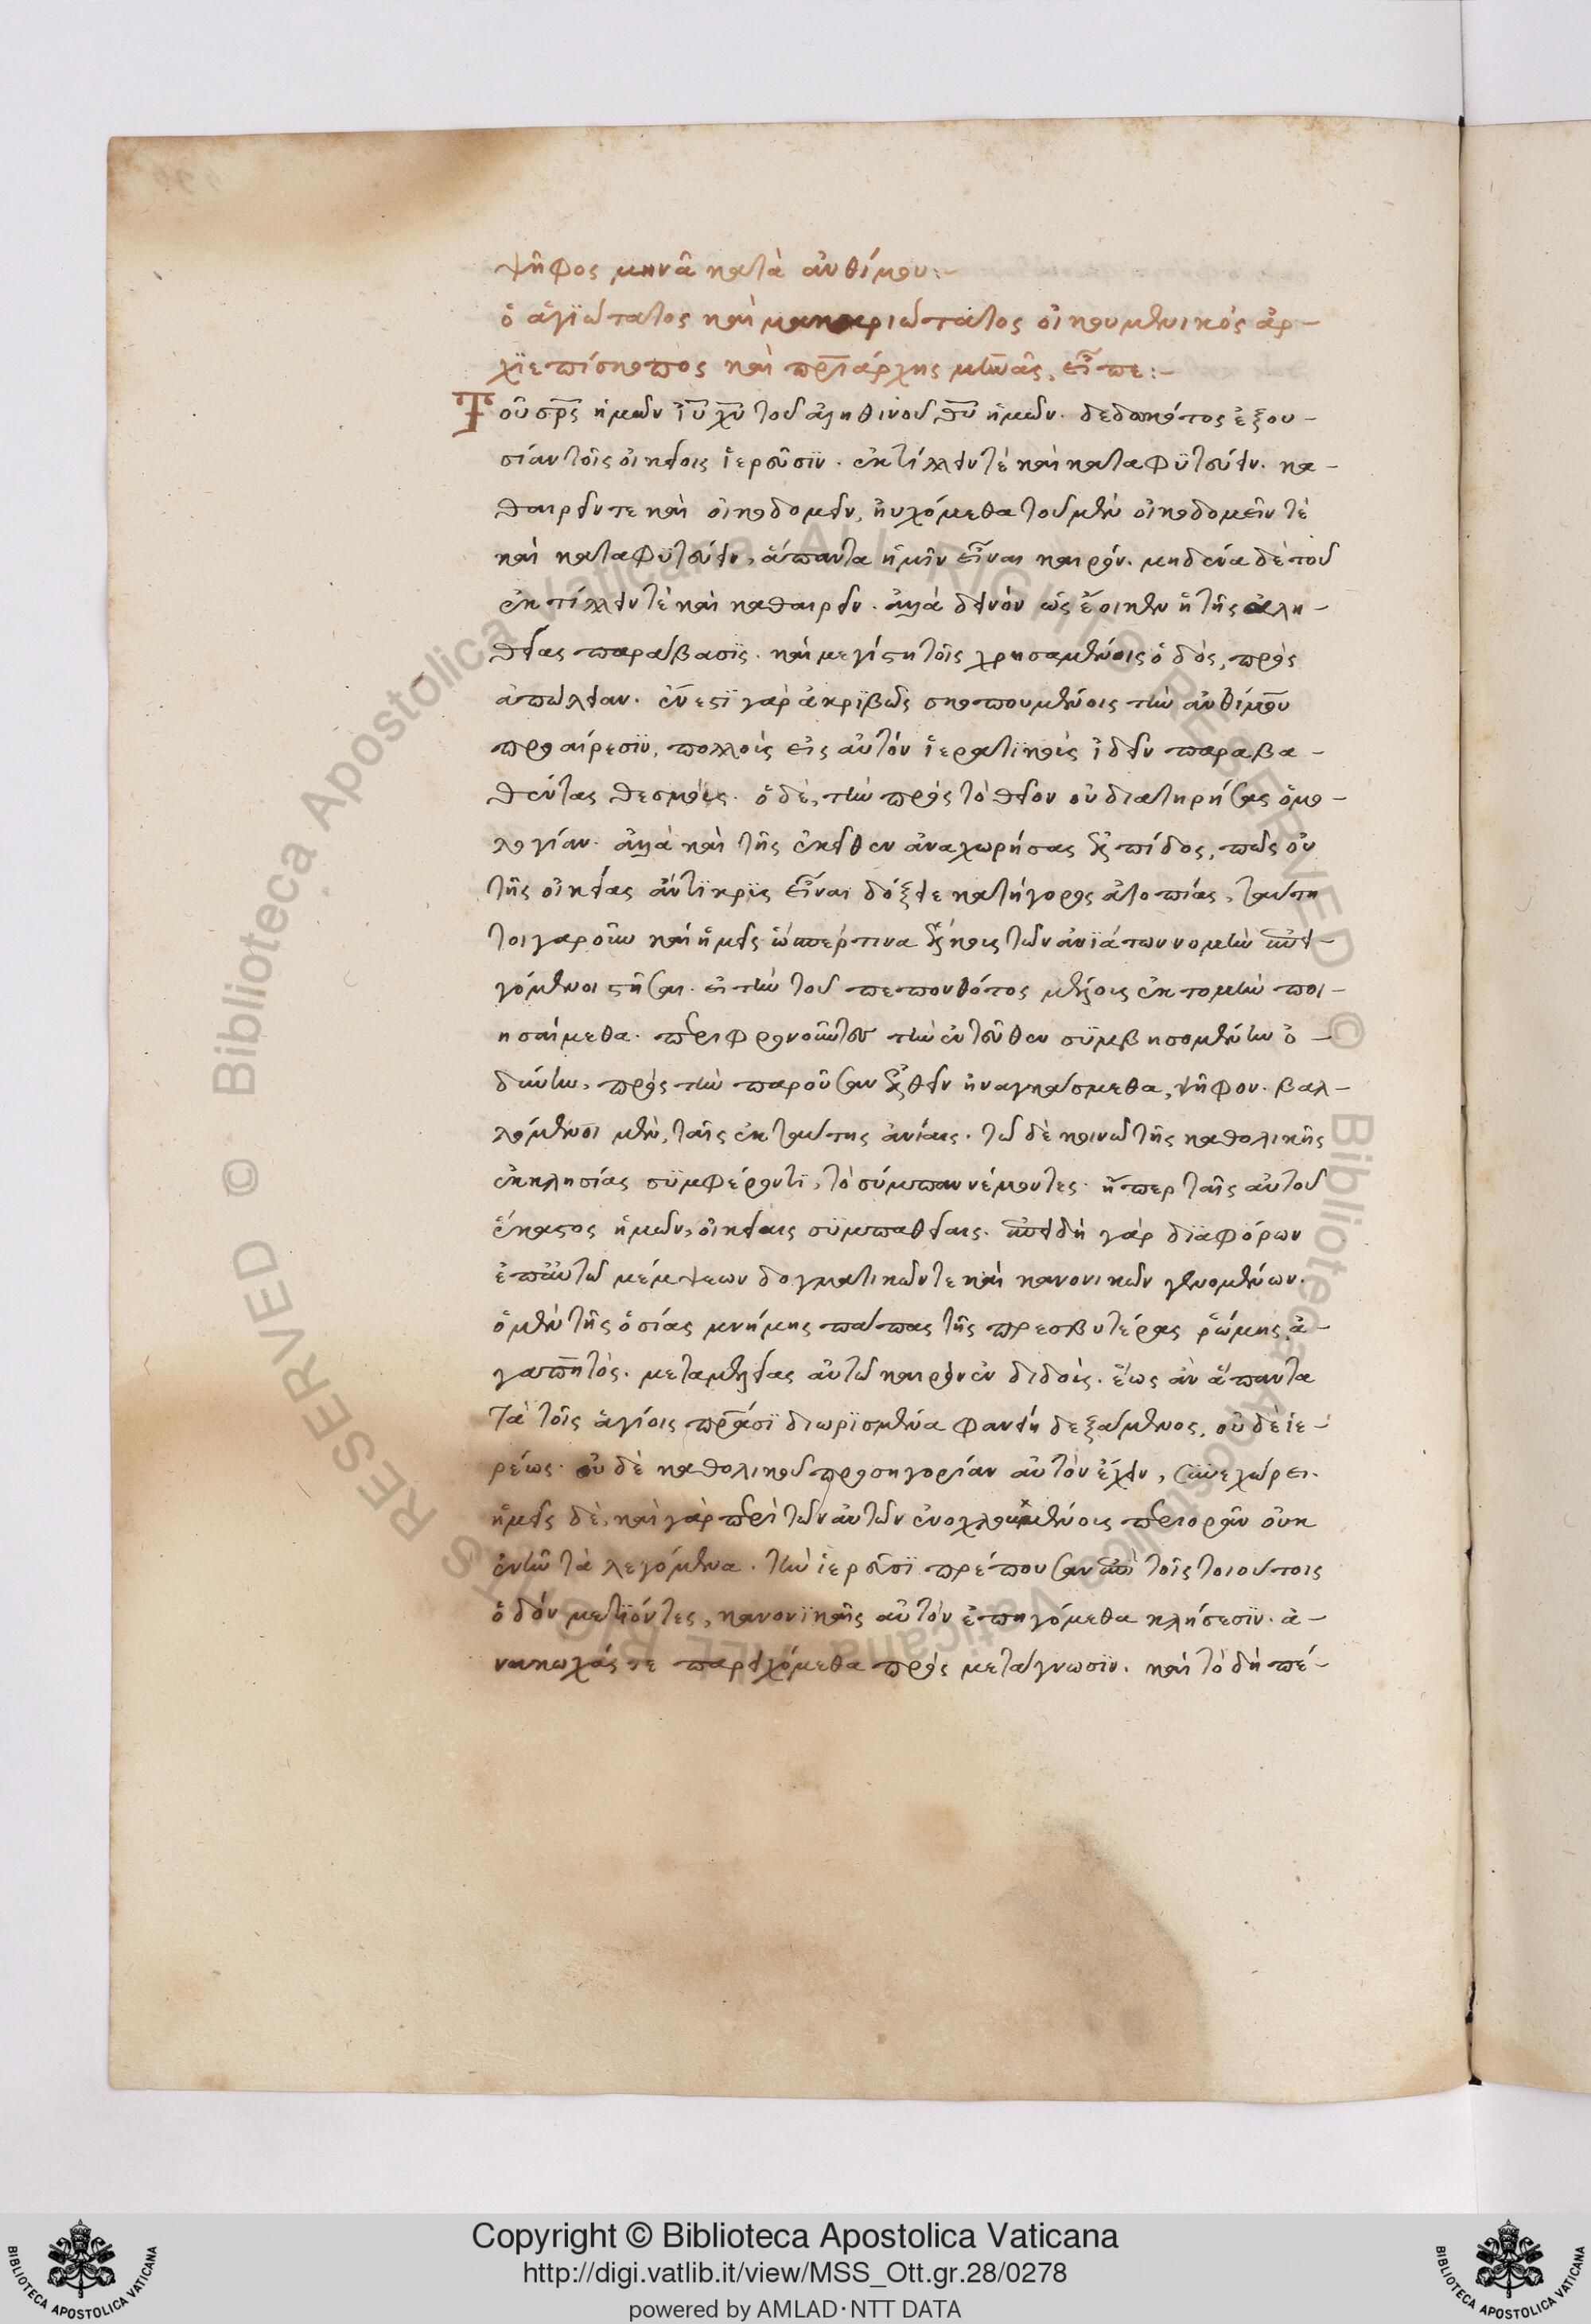 ψῆφος μηνᾶ κατὰ ἀνθίμου:–
ὁ ἁγϊώτατος καὶ μακαριώτατος οἰκουμενικὸς ἀρ–
χϊεπίσκοπος καὶ πρϊάρχης μηνᾶς, εἶπε:–
Τοῦ σρς ἡμῶν ἰυ χυ τοῦ ἀληθινοῦ θυ ἡμῶν. δεδωκότος ἐξου–
σίαν τοῖς οἰκείοις ἱερεῦσϊν. ἐκτίλλειν τὲ καὶ καταφϋτεύειν. κα–
θαιρεῖν τε καὶ οἰκοδομεῖν, ηὐχόμεθα τοῦ μὲν οἰκοδομεῖν τὲ
καὶ καταφϋτεύειν, ἅπαντα ἡμῖν εἶναι καιρόν. μηδένα δὲ τοῦ
ἐκτίλλειν τὲ καὶ καθαιρεῖν. ἀλλὰ δεινὸν ὡς ἔοικεν ἡ τῆς ἀλη–
θείας παράβασϊς. καὶ μεγίστη τοῖς χρησαμένοις ὁδὸς, πρὸς
ἀπώλειαν. ἔνεστϊ γὰρ ἀκρϊβῶς σκοπουμένοις τὴν ἀνθίμου
προαίρεσϊν, πολλοὺς εἰς αὐτὸν ἱερατϊκοὺς ἰδεῖν παραβα–
θέντας θεσμούς. ὁ δὲ, τὴν πρὸς τὸ θεῖον οὐ διατηρήσας ὁμο–
λογίαν. ἀλλὰ καὶ τῆς ἐκεῖθεν ἀναχωρήσας ἐλπίδος, πῶς οὐ
τῆς οἰκείας ἄντϊκρϊς εἶναι δόξειε κατήγορος ἀτοπίας, ταύτη
τοιγαροῦν καὶ ἡμεῖς ὥσπερ τινα ἕλκους τῶν ἀνϊάτων νομὴν ἐπει–
γόμενοι στῆσαι. εἰ τὴν τοῦ πεπονθότος μέλους ἐκτομὴν ποι–
ησαίμεθα. περιφρονοῦντες τὴν ἐντεῦθεν συμβησομένην ὀ–
δύνην, πρὸς τὴν παροῦσαν ἐλθεῖν ἠναγκάσμεθα, ψῆφον. βαλ–
λόμενοι μὲν, ταῖς ἐκ ταύτης ἀνίαις. τῶ δὲ κοινῶ τῆς καθολικῆς
ἐκκλησίας συμφέροντϊ, τὸ σύμπαν νέμοντες. ἤπερ ταῖς αὐτοῦ
ἕκαστος ἡμῶν, οἰκείαις συμπαθείαις. ἐπειδὴ γὰρ δϊαφόρων
ἐπ' αὐτῶ μέμψεων δογματικῶν τε καὶ κανονικῶν γενομένων.
ὁ μὲν τῆς ὁσίας μνήμης πάπας τῆς πρεσβυτέρας ῥώμης ἀ–
γαπητὸς. μεταμελείας αὐτῶ καιρὸν ἐνδιδοὺς. ἕως ἂν ἅπαντα
τὰ τοῖς ἁγίοις πράσϊ διωρϊσμένα φανείη δεξάμενος, οὐδὲ ἱε–
ρέως. οὐδὲ καθολικοῦ προσηγορίαν αὐτὸν ἔχειν, συνεχώρει.
ἡμεῖς δὲ, καὶ γὰρ περὶ τῶν αὐτῶν ἐνοχλουμένοις περιορᾶν οὐκ
ἐνῆν τὰ λεγόμενα. τὴν ἱερεῦσϊ πρέπουσαν ἐπὶ τοῖς τοιούτοις
ὁδὸν μετϊόντες, κανονϊκαῖς αὐτὸν ἐπηγόμεθα κλήσεσϊν. ἀ–
νακωχάς τε παρειχόμεθα πρὸς μετάγνωσϊν. καὶ τὸ δὴ πέ–
Copyright © Biblioteca Apostolica Vaticana
http://digi.vatlib.it/view/MSS_Ott.gr.28/0278
powered by AMLAD·NTT DATA
BIBLIOTECA APOSTOLICA VATICANA
BIBLIOTECA APOSTOLICA VATICANA
© Biblioteca Apostolica Vaticana ALL RIGHTS RESERVED
© Biblioteca Apostolica Vaticana ALL RIGHTS RESERVED